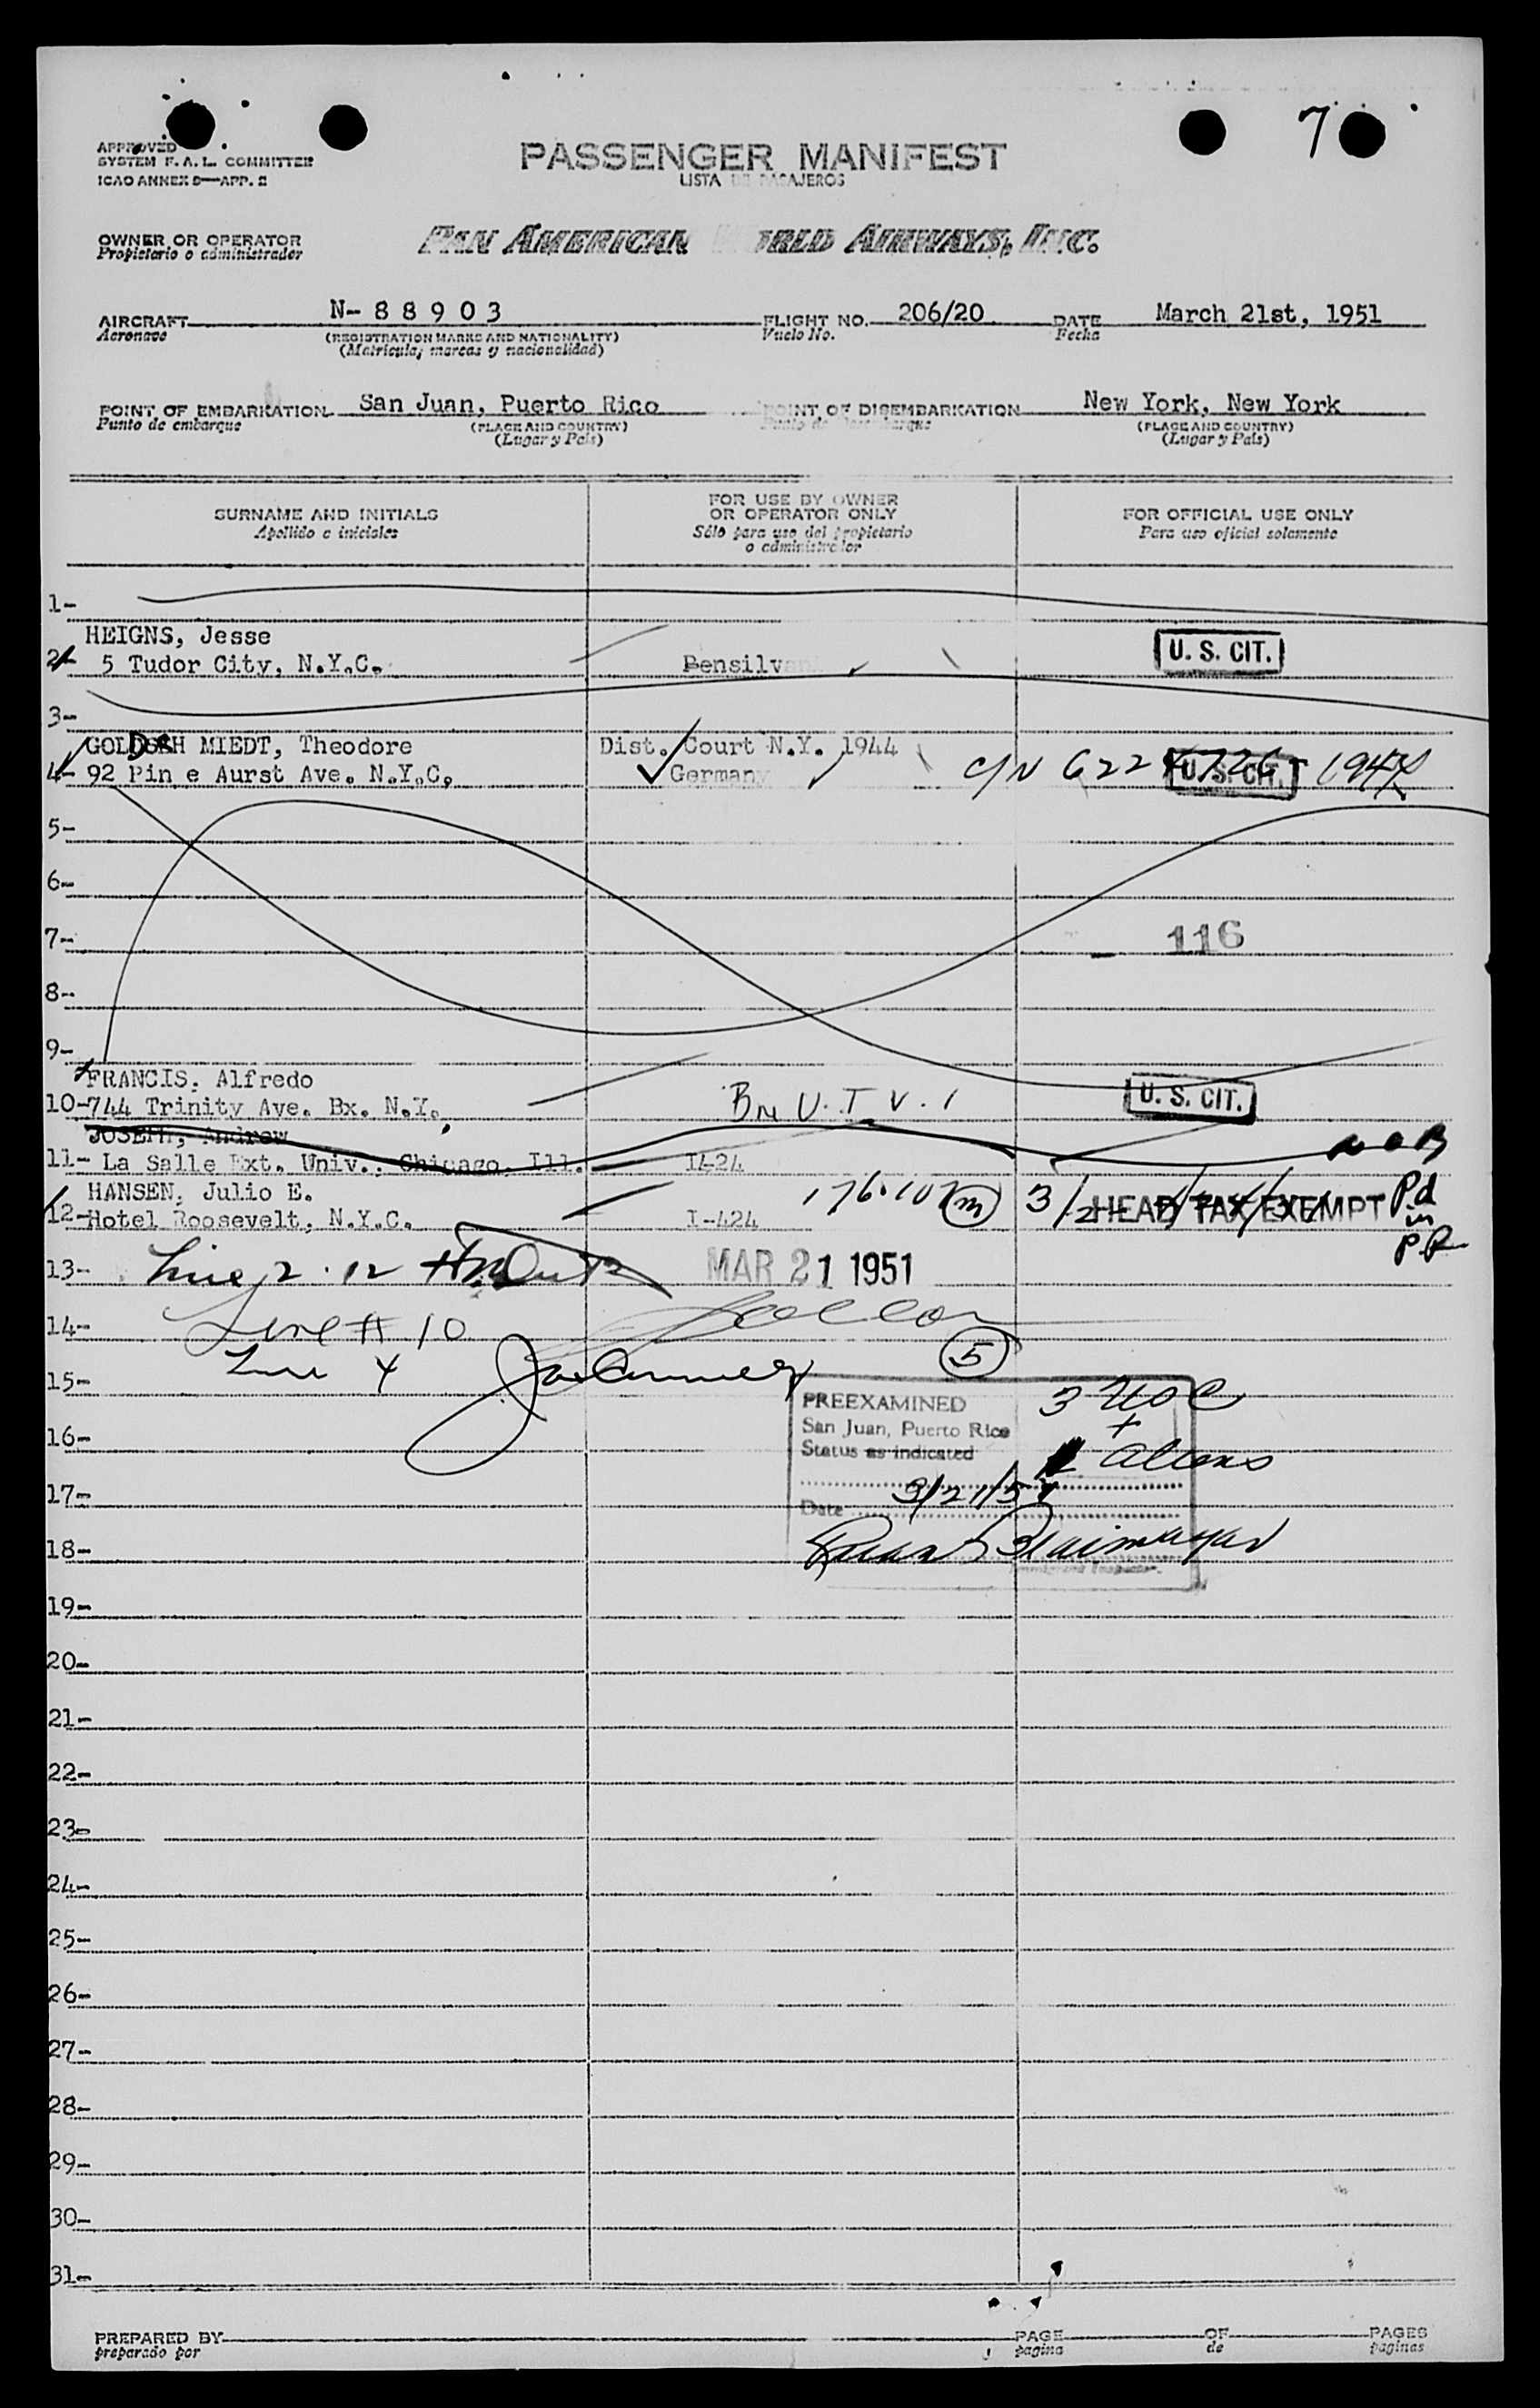 7
APPROVED
SYSTEM F. A. L. COMMITTEE
ICAO ANNEX 9—APP. E
PASSENGER MANIFEST
LISTA DE PASAJEROS
OWNER OR OPERATOR
Propietario o administrador
PAN AMERICAN WORLD AIRWAYS, INC.
AIRCRAFT N- 8 8 9 0 3 FLIGHT NO. 206/20 DATE March 21st, 1951
Aeronave (REGISTRATION MARKS AND NATIONALITY) Vuelo No. Fecha
(Matricula, marcas y nacionalidad)
POINT OF EMBARKATION San Juan, Puerto Rico POINT OF DISEMBARKATION New York, New York
Punto de embarque (PLACE AND COUNTRY) Punto de desembarque (PLACE AND COUNTRY)
(Lugar y País) (Lugar y País)
SURNAME AND INITIALS
Apellido e iniciales
FOR USE BY OWNER
OR OPERATOR ONLY
Sólo para uso del propietario
o administrador
FOR OFFICIAL USE ONLY
Para uso oficial solamente
1-
HEIGNS, Jesse
2- 5 Tudor City, N.Y.C. Pensilvan U. S. CIT.
3-
GOLDSCH MIEDT, Theodore Dist. Court N.Y. 1944
4- 92 Pin e Aurst Ave. N.Y.C, Germany C/N U. S. CIT.
5-
6-
7- 116
8-
9-
FRANCIS, Alfredo
10- 744 Trinity Ave. Bx. N.Y. U. S. CIT.
JOSEPH, Andrew
11- La Salle Ext. Univ., Chicago, Ill. I424
HANSEN, Julio E.
12- Hotel Roosevelt, N.Y.C. I-424 HEAD TAX EXEMPT Pd
in
P.R
13- Line 2 · 12 MAR 21 1951
14- Line # 10
15- Line 4 5
PREEXAMINED
San Juan, Puerto Rico
16- Status as indicated
3
+
Aliens
17-
Date 3/21/51
18-
19-
20-
21-
22-
23-
24-
25-
26-
27-
28-
29-
30-
31-
PREPARED BY PAGE OF PAGES
preparado por pagina de paginas